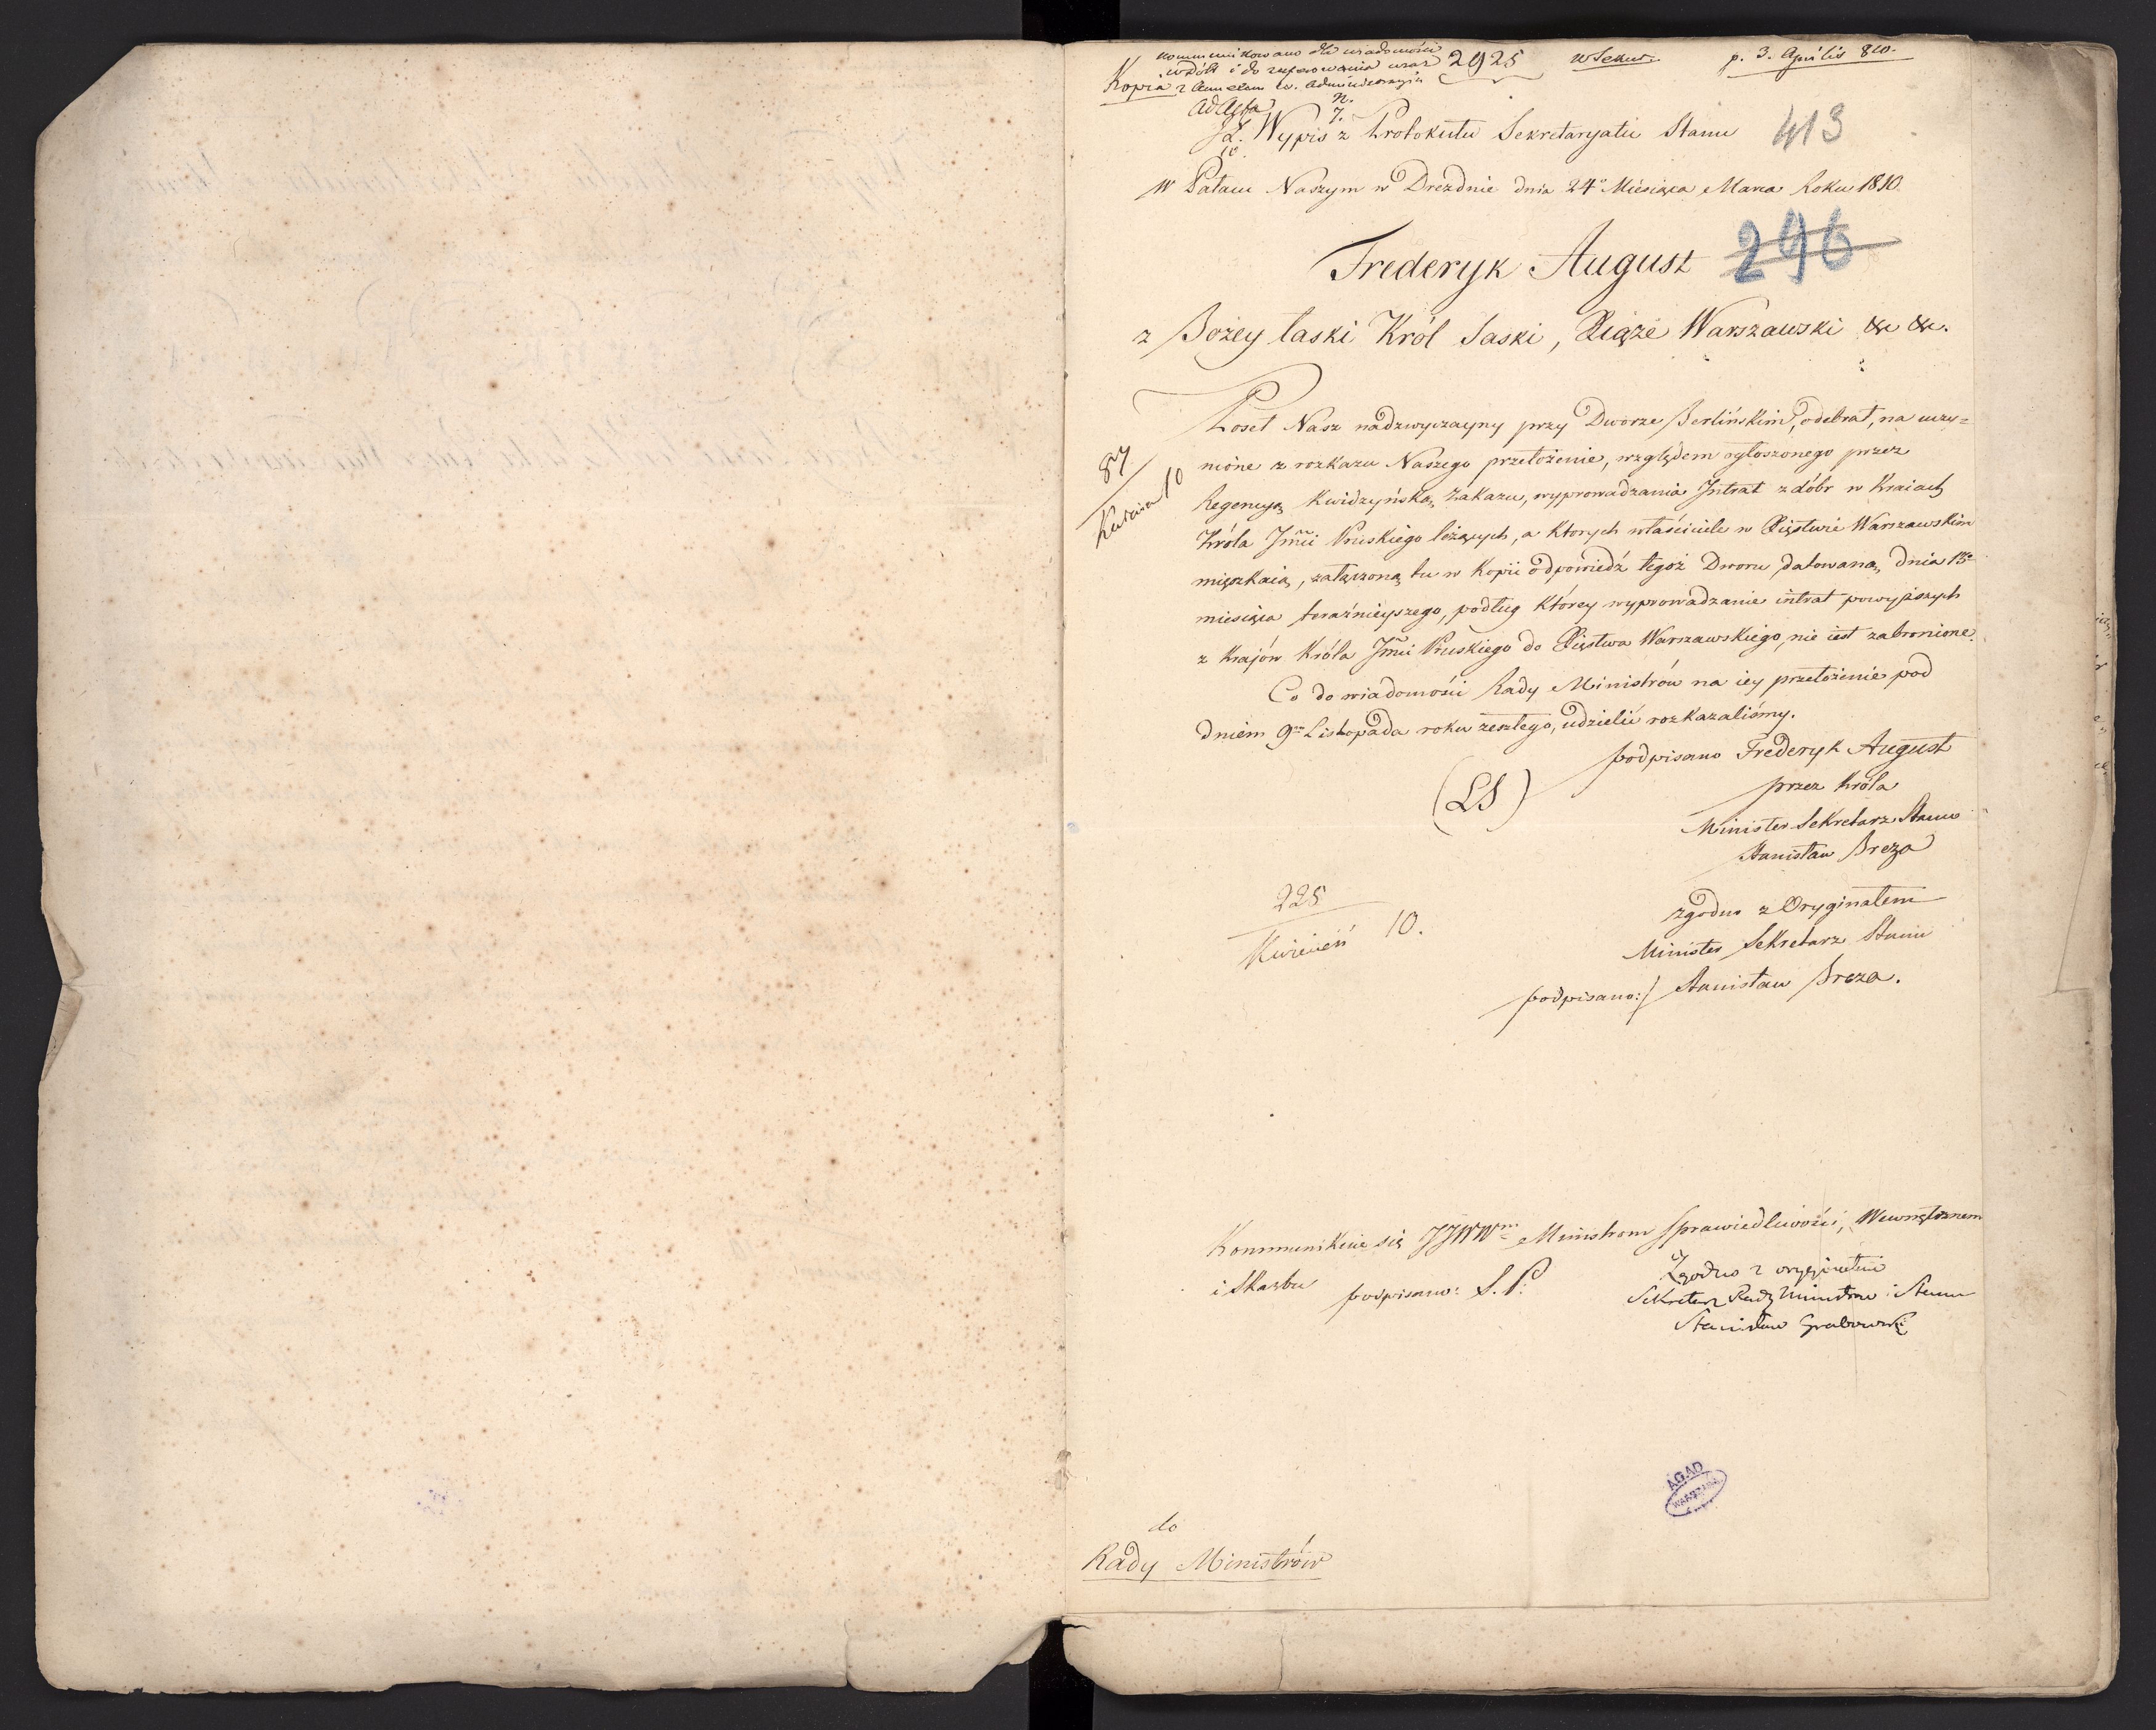 kommunikowano dla wiadomości
wzdóbr i do zreferowania wraz 2925 p. 3. Aprilis 810.
Kopia
Ad Acta
N. 7.
Wypis z Protokułu Sekretaryatu Stanu 413
W Pałacu Naszym w Dreznie dnia 24º Miesiąca Marca Roku 1810
Frederyk August 296
z Bożey łaski Król Saski, Xiąże Warszawski &c &c.
Poseł Nasz nadzwyczayny przy Dworze Berlińskim, odebrał, na uczy=
nione z rozkazu Naszego przełożenie, względem ogłoszonego przez
87
Kwietnia 10
Regencyą Kwidzyńską zakazu, wyprowadzania Intrat z dóbr w Kraiach
Króla Jmci Pruskiego leżących, a ktorych właściciele w Xięstwie Warszawskim
mięszkaią, załączoną tu w Kopii odpowiedź tegoż Dworu datowaną dnia 13º
miesiąca teraźnieyszego, podług którey wyprowadzanie intrat powyższych
z Krajów Króla Jmci Pruskiego do Xięstwa Warszawskiego, nie iest zabronione.
Co do wiadomości Rady Ministrów na iey przełożenie pod
dniem 9m Listopada roku zeszłego, udzielić rozkazaliśmy.
podpisano Frederyk August
(LS)
przez Króla
Minister Sekretarz Stanu
Stanisław Breza
225
Kwiecień 10.
zgodno z Oryginałem
Minister Sekretarz Stanu
podpisano:/ Stanisław Breza.
Kommunikuie się JJWWm Ministrom Sprawiedliwości, Wewnętrznem
i Skarbu podpisano: S. P.
Zgodno z oryginałem
Sekretarz Rady Ministrow i Stanu
Stanisław Grabowski
AGAD
WARSZAWA
do
Rady Ministrów